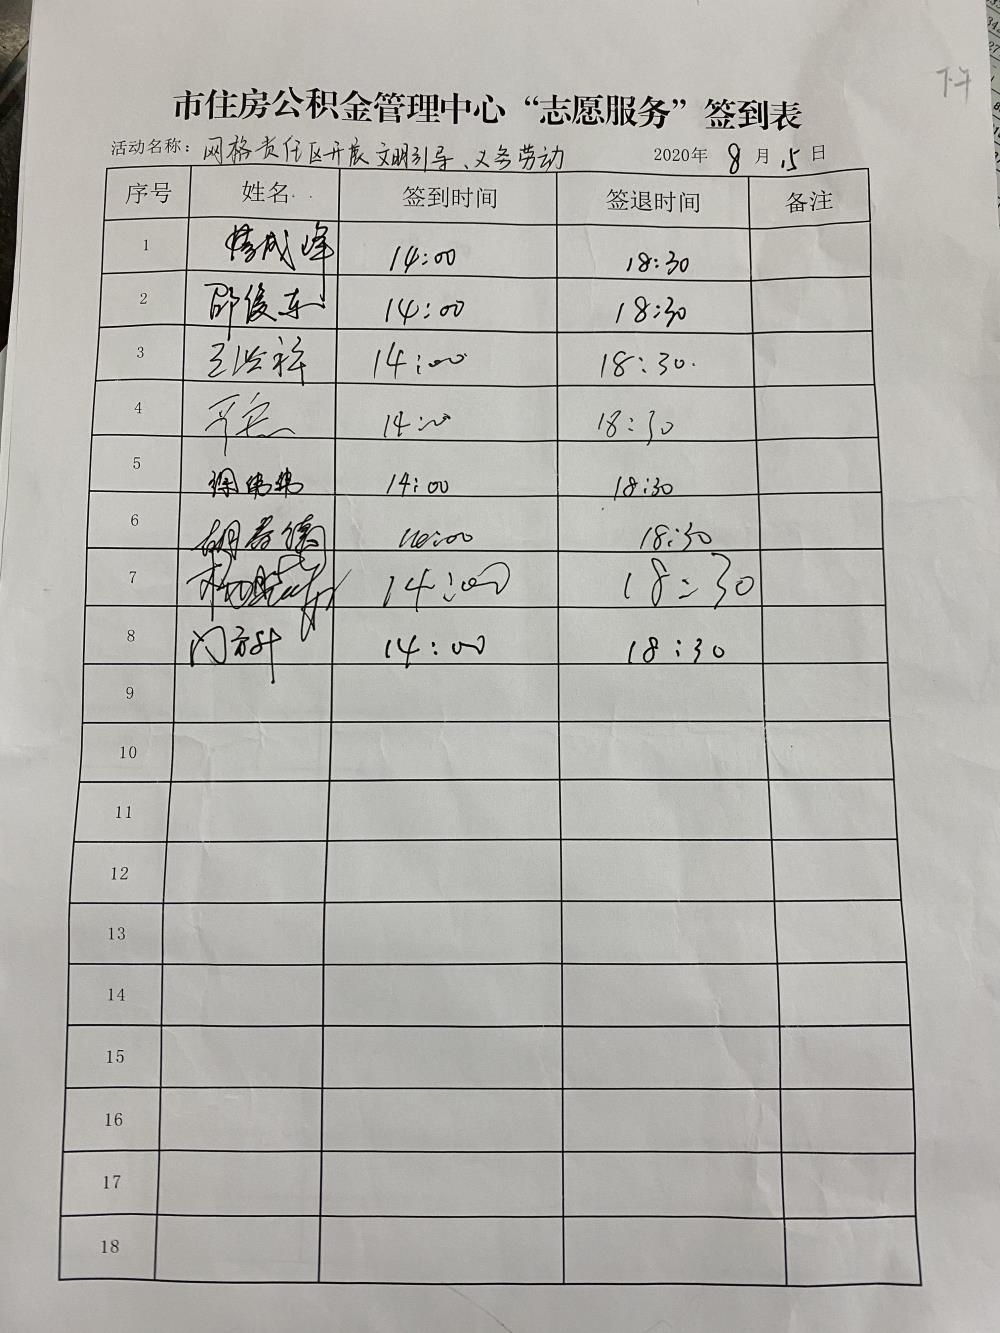 市住房公积金管理中心“志愿服务”签到表
活动名称：网格责任区开展文明引导、义务劳动 2020年 8 月 15 日
序号 姓名 签到时间 签退时间 备注
1 成峰 14:00 18:30
2 邵俊东 14:00 18:30
3 王洪祥 14:00 18:30
4 14:00 18:30
5 徐伟伟 14:00 18:30
6 胡春德 18:30
7 杨 14:00 18:30
8 闫 14:00 18:30
9
10
11
12
13
14
15
16
17
18